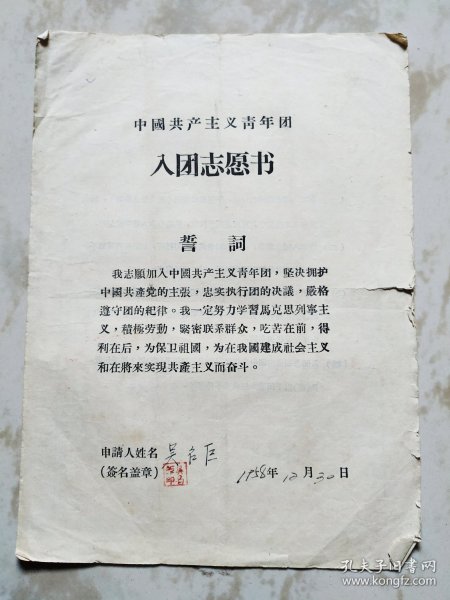 中國共产主义青年团
入团志愿书
誓詞
我志願加入中國共产主义青年团，坚决拥护
中國共產党的主張，忠实执行团的决議，嚴格
遵守团的紀律。我一定努力学習馬克思列寧主
义，積極劳動，緊密联系群众，吃苦在前，得
利在后，为保卫祖國，为在我國建成社会主义
和在將來实現共產主义而奋斗。
申請人姓名 吴名臣
(簽名盖章)
1958年12月30日
孔夫子旧书网
www.kongfz.com